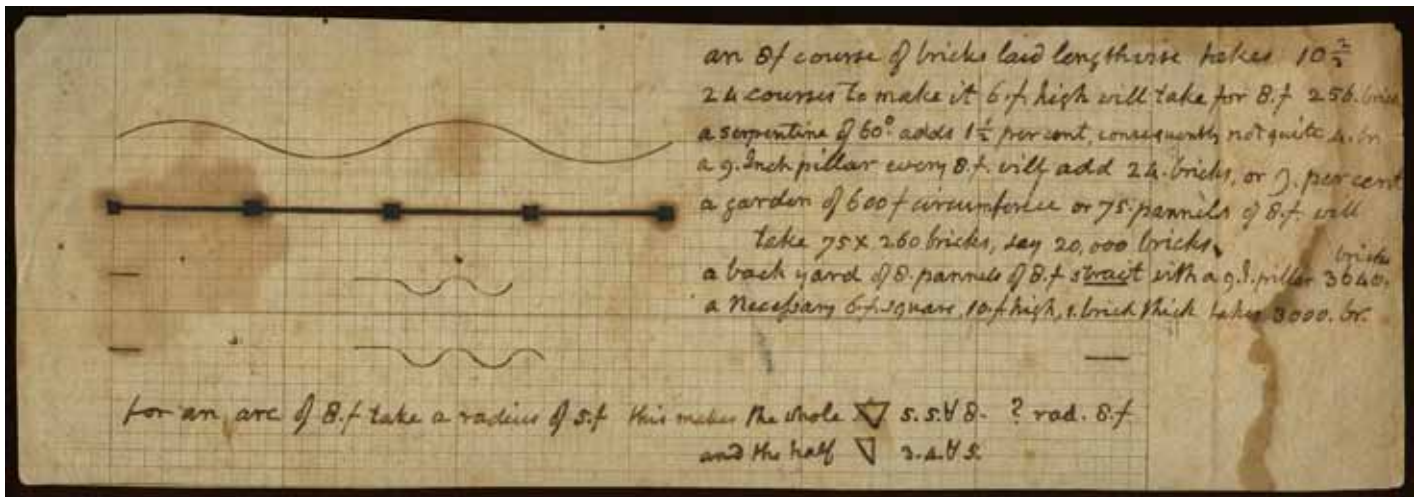 an 8f course of bricks laid lengthwise takes 10 2/3
24 courses to make it 6.f. high will take for 8.f 256. brick
a serpentine of 60° adds 1½ per cent, consequently not quite 4. br
a 9. Inch pillar every 8.f. will add 24. bricks, or 9. per cent
a garden of 600 f circumference or 75. pannels of 8.f. will
take 75 x 260 bricks, say 20,000 bricks
a back yard of 8. pannels of 8.f strait with a 9.I. pillar 3640. bricks
a Necessary 6.f. square, 10.f high, 1. brick thick takes 3000. br.
for an arc of 8.f take a radius of 5.f this makes the whole ▽ 5.5.∀ 8. ? rad. 8.f
and the half ▽ 3.4.∀ 5.